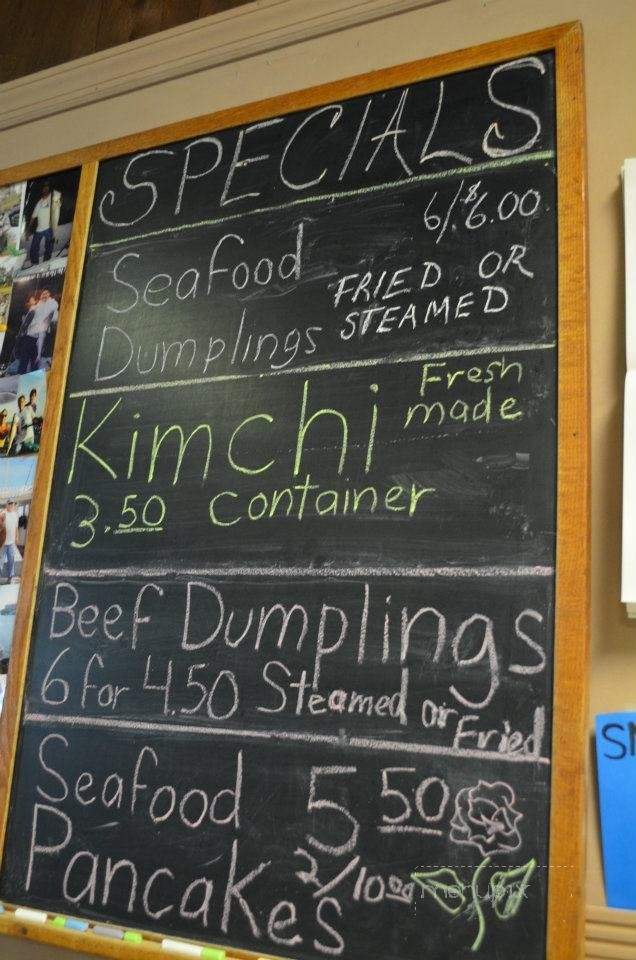 SPECIALS
6/$6.00
Seafood
FRIED OR
Dumplings STEAMED
Kimchi Fresh
made
3.50 Container
Beef Dumplings
6 for 4.50 Steamed or Fried
Seafood 5 50
Pancakes 2/10 00
menupix
SN